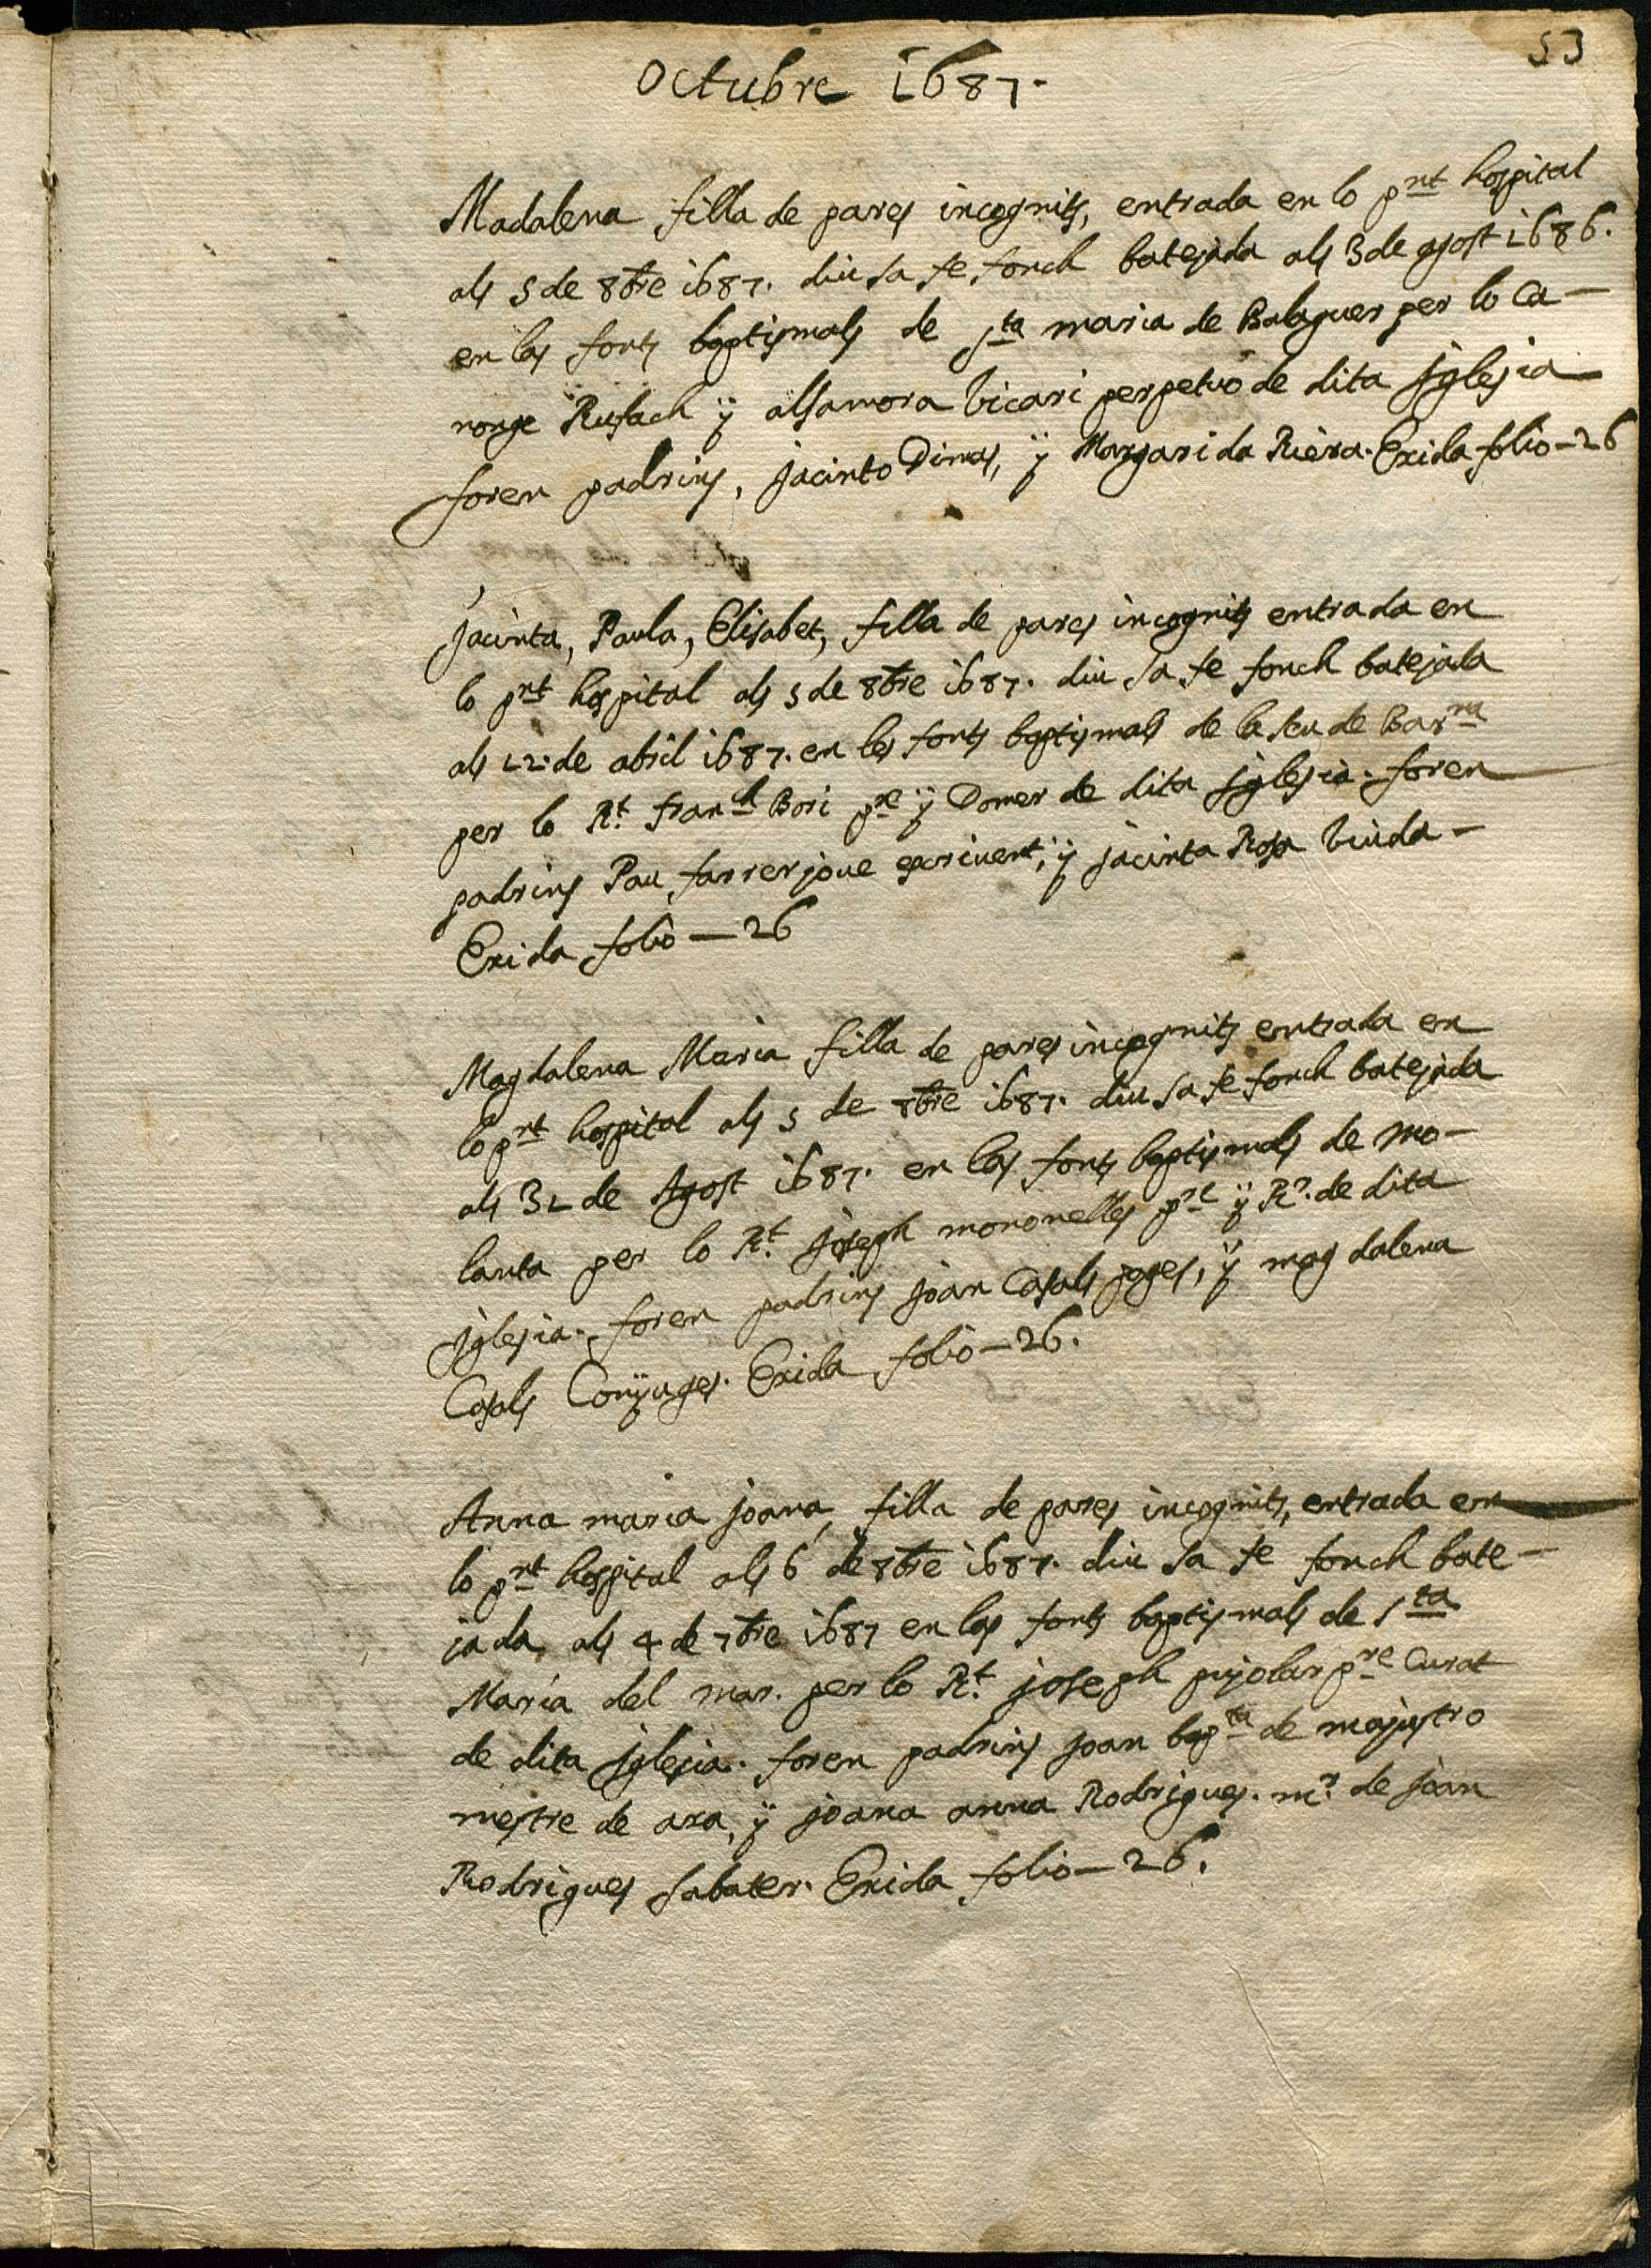 53
Octubre 1687.
Madalena filla de pares incognits, entrada en lo pnt hospital
als 5 de 8bre 1687. diu sa fe fonch batejada als 3 de agost 1686.
en las fonts baptismals de Sta maria de Balaguer per lo Ca-
nonge Rufach ÿ alsamora Vicari perpetuo de dita Iglesia
foren padrins, Jacinto Dimas, ÿ Margarida Riera. Exida folio-26
Jacinta, Paula, Elisabet, filla de pares incognits entrada en
lo pnt hospital als 5 de 8bre 1687. diu sa fe fonch batejada
als 12 de abril 1687. en les fonts baptismals de la seu de Barna
per lo Rt. Franch Bori pre ÿ Domer de dita Iglesia. foren
padrins Pau farrer jove escrivent, ÿ Jacinta Rosa Viuda-
Exida folio-26
Magdalena Maria filla de pares incognits entrada en
lo pnt hospital als 5 de 8bre 1687. diu sa fe fonch batejada
als 31 de Agost 1687. en las fonts baptismals de mo-
lanta per lo Rt. Joseph mononelles pre ÿ Rr. de dita
Iglesia. foren padrins Joan Casals pages, ÿ magdalena
Casals Conÿuges. Exida folio-26.
Anna maria Joana, filla de pares incognits, entrada en
lo pnt hospital als 6 de 8bre 1687. diu sa fe fonch bate-
jada, als 4 de 7bre 1687 en las fonts baptismals de Sta
Maria del mar. per lo Rt. Joseph pujolar pre Curat
de dita Iglesia. foren padrins Joan bapta de majustro
mestre de axa, ÿ Joana anna Rodrigues. mr. de Joan
Rodrigues sabater. Exida folio-26.